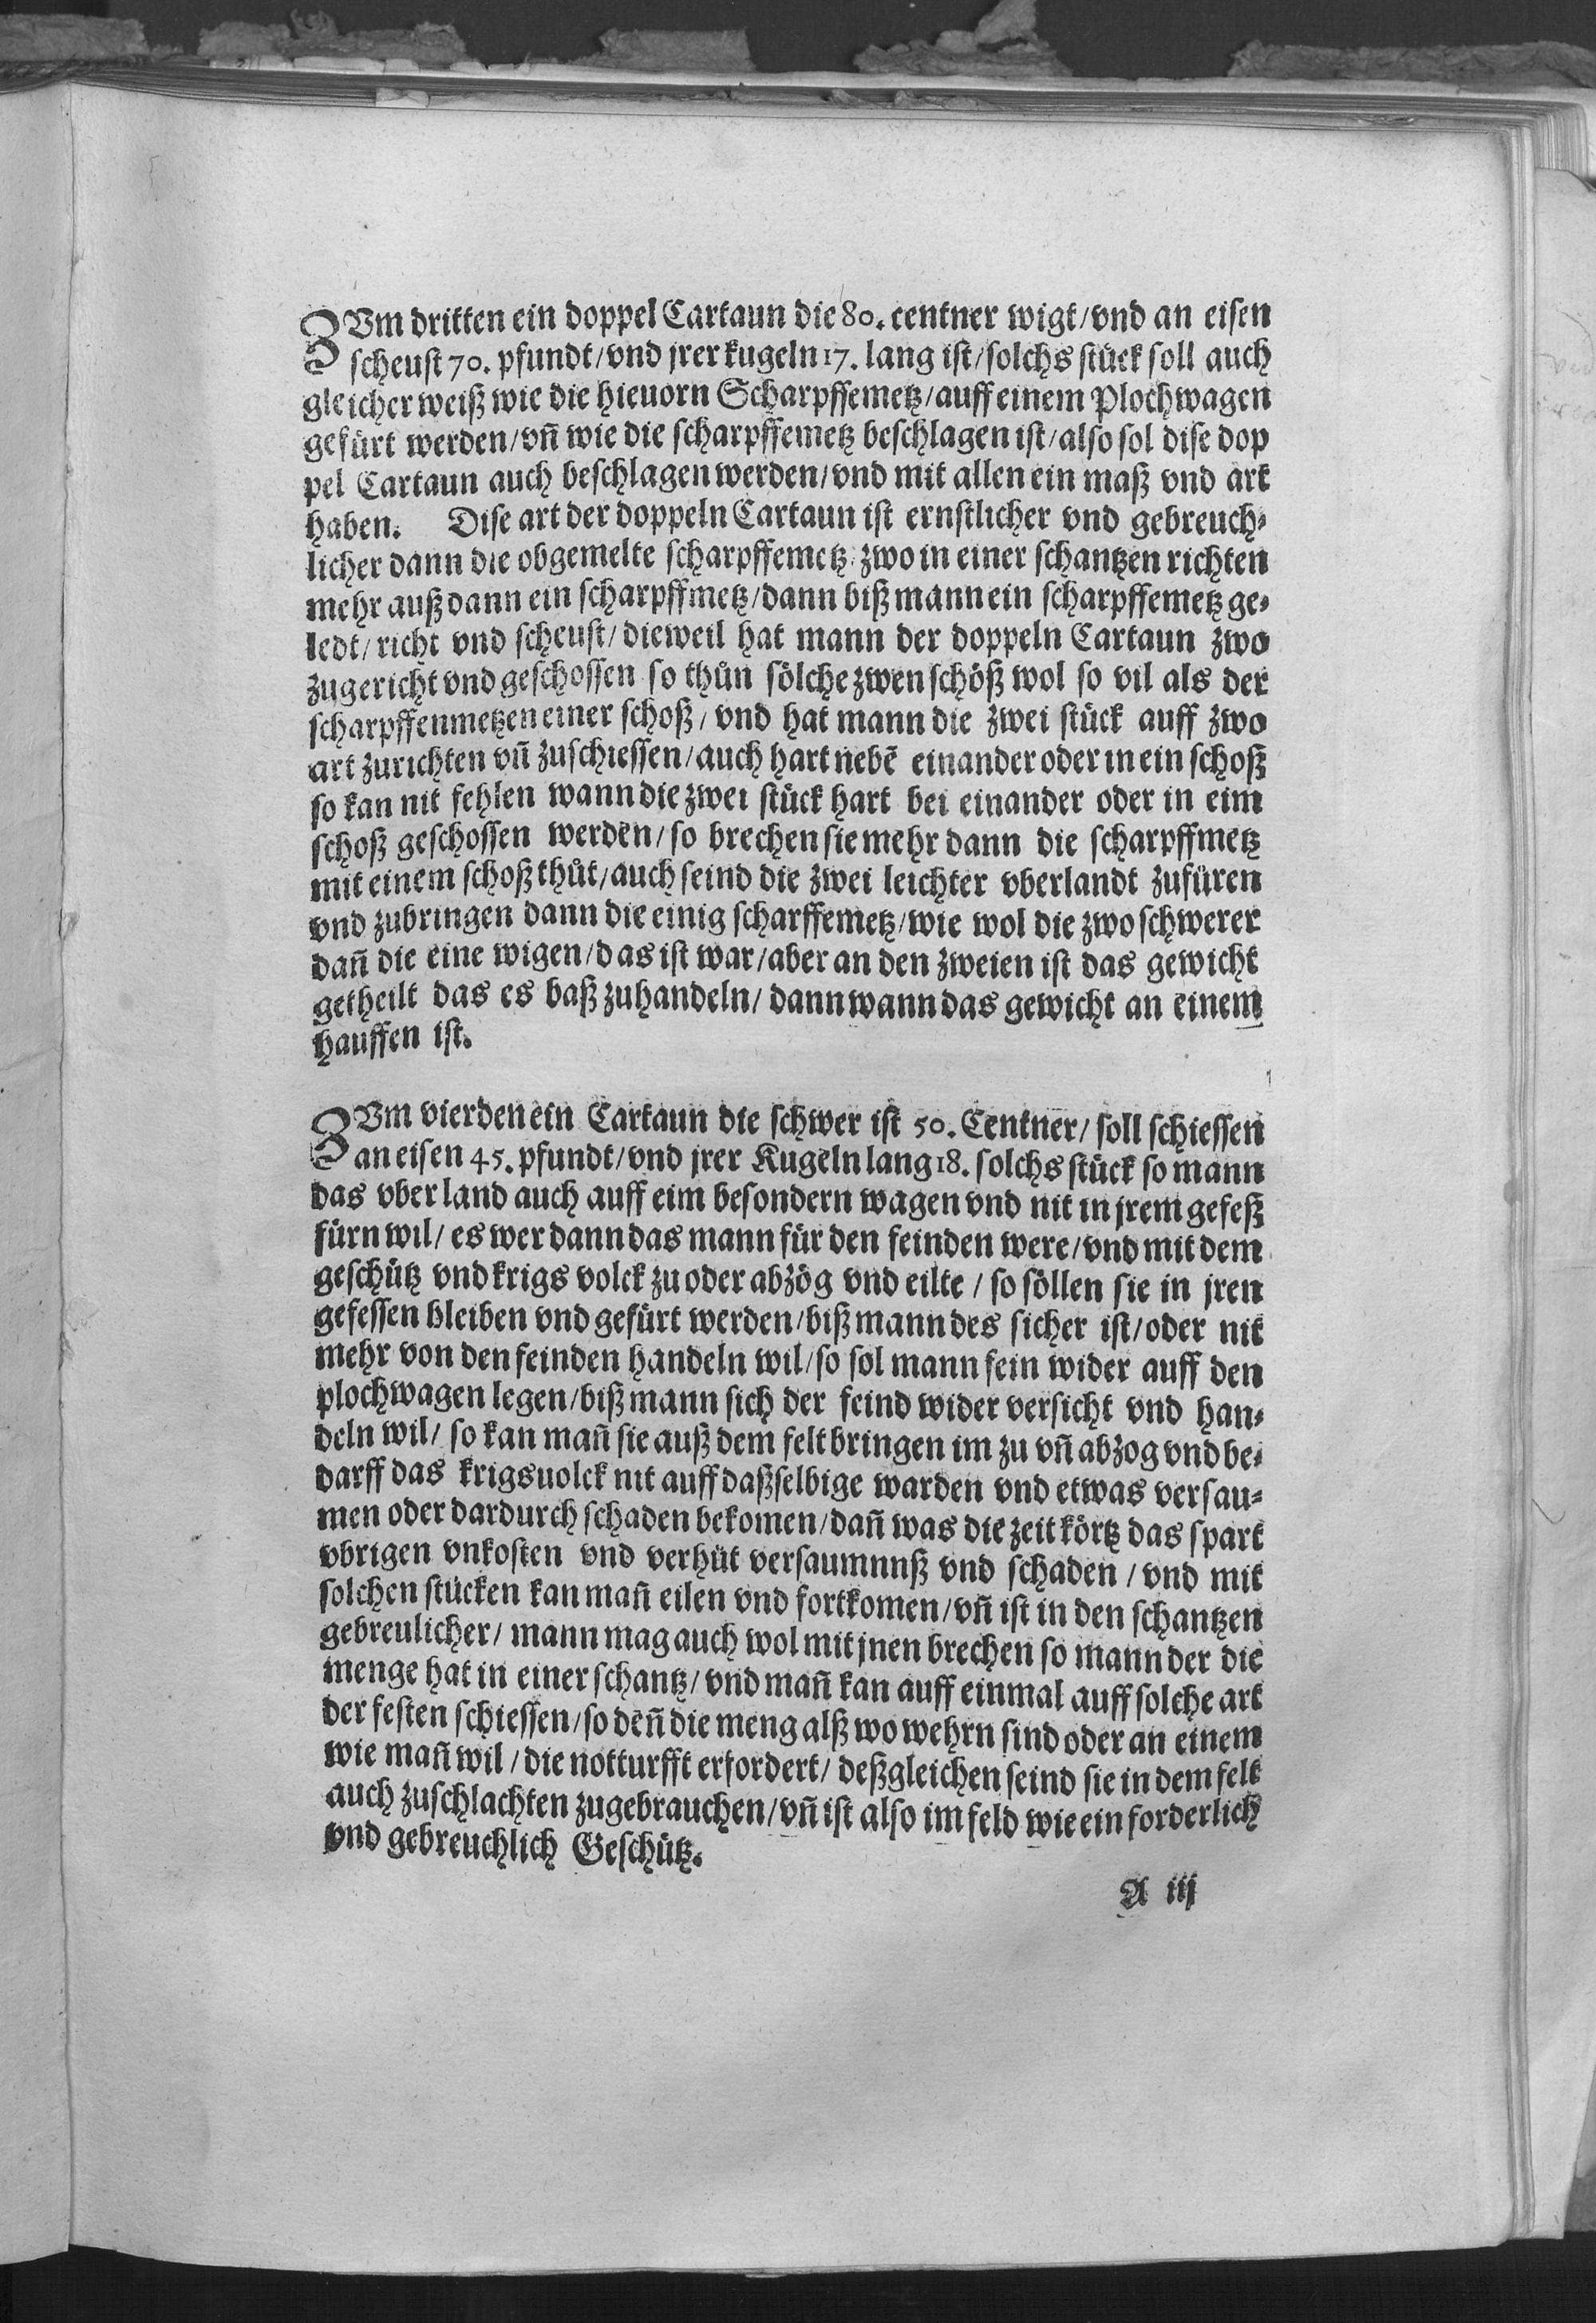 ZUm dritten ein doppel Cartaun die 80. centner wigt/vnd an eisen
scheust 70. pfundt/vnd jrer kugeln 17. lang ist/solchs stück soll auch
gleicher weiß wie die hieuorn Scharpffemetz/auff einem Plochwagen
gefürt werden/vñ wie die scharpffemetz beschlagen ist/also sol dise dop
pel Cartaun auch beschlagen werden/vnd mit allen ein maß vnd art
haben. Dise art der doppeln Cartaun ist ernstlicher vnd gebreuch-
licher dann die obgemelte scharpffemetz/zwo in einer schantzen richten
mehr auß dann ein scharpffmetz/dann biß mann ein scharpffemetz ge-
ledt/richt vnd scheust/dieweil hat mann der doppeln Cartaun zwo
zugericht vnd geschossen so thůn sölche zwen schöß wol so vil als der
scharpffenmetzen einer schoß/vnd hat mann die zwei stück auff zwo
art zurichten vñ zuschiessen/auch hart nebẽ einander oder in ein schoß
so kan nit fehlen wann die zwei stück hart bei einander oder in eim
schoß geschossen werden/so brechen sie mehr dann die scharpffmetz
mit einem schoß thůt/auch seind die zwei leichter vberlandt zufüren
vnd zubringen dann die einig scharffemetz/wie wol die zwo schwerer
dañ die eine wigen/das ist war/aber an den zweien ist das gewicht
getheilt das es baß zuhandeln/dann wann das gewicht an einem
hauffen ist.
ZUm vierden ein Cartaun die schwer ist 50. Centner/soll schiessen
an eisen 45. pfundt/vnd jrer Kugeln lang 18. solchs stück so mann
das vber land auch auff eim besondern wagen vnd nit in jrem gefeß
fürn wil/es wer dann das mann für den feinden were/vnd mit dem
geschütz vnd krigs volck zu oder abzög vnd eilte/so söllen sie in jren
gefessen bleiben vnd gefürt werden/biß mann des sicher ist/oder nit
mehr von den feinden handeln wil/so sol mann fein wider auff den
plochwagen legen/biß mann sich der feind wider versicht vnd han-
deln wil/so kan mañ sie auß dem felt bringen im zu vñ abzog vnd be-
darff das krigsuolck nit auff daßselbige warden vnd etwas versau-
men oder dardurch schaden bekomen/dañ was die zeit körtz das spart
vbrigen vnkosten vnd verhüt versaumnnß vnd schaden/vnd mit
solchen stücken kan mañ eilen vnd fortkomen/vñ ist in den schantzen
gebreulicher/mann mag auch wol mit jnen brechen so mann der die
menge hat in einer schantz/vnd mañ kan auff einmal auff solche art
der festen schiessen/so deñ die meng alß wo wehrn sind oder an einem
wie mañ wil/die notturfft erfordert/deßgleichen seind sie in dem felt
auch zuschlachten zugebrauchen/vñ ist also im feld wie ein forderlich
vnd gebreuchlich Geschütz.
A iij